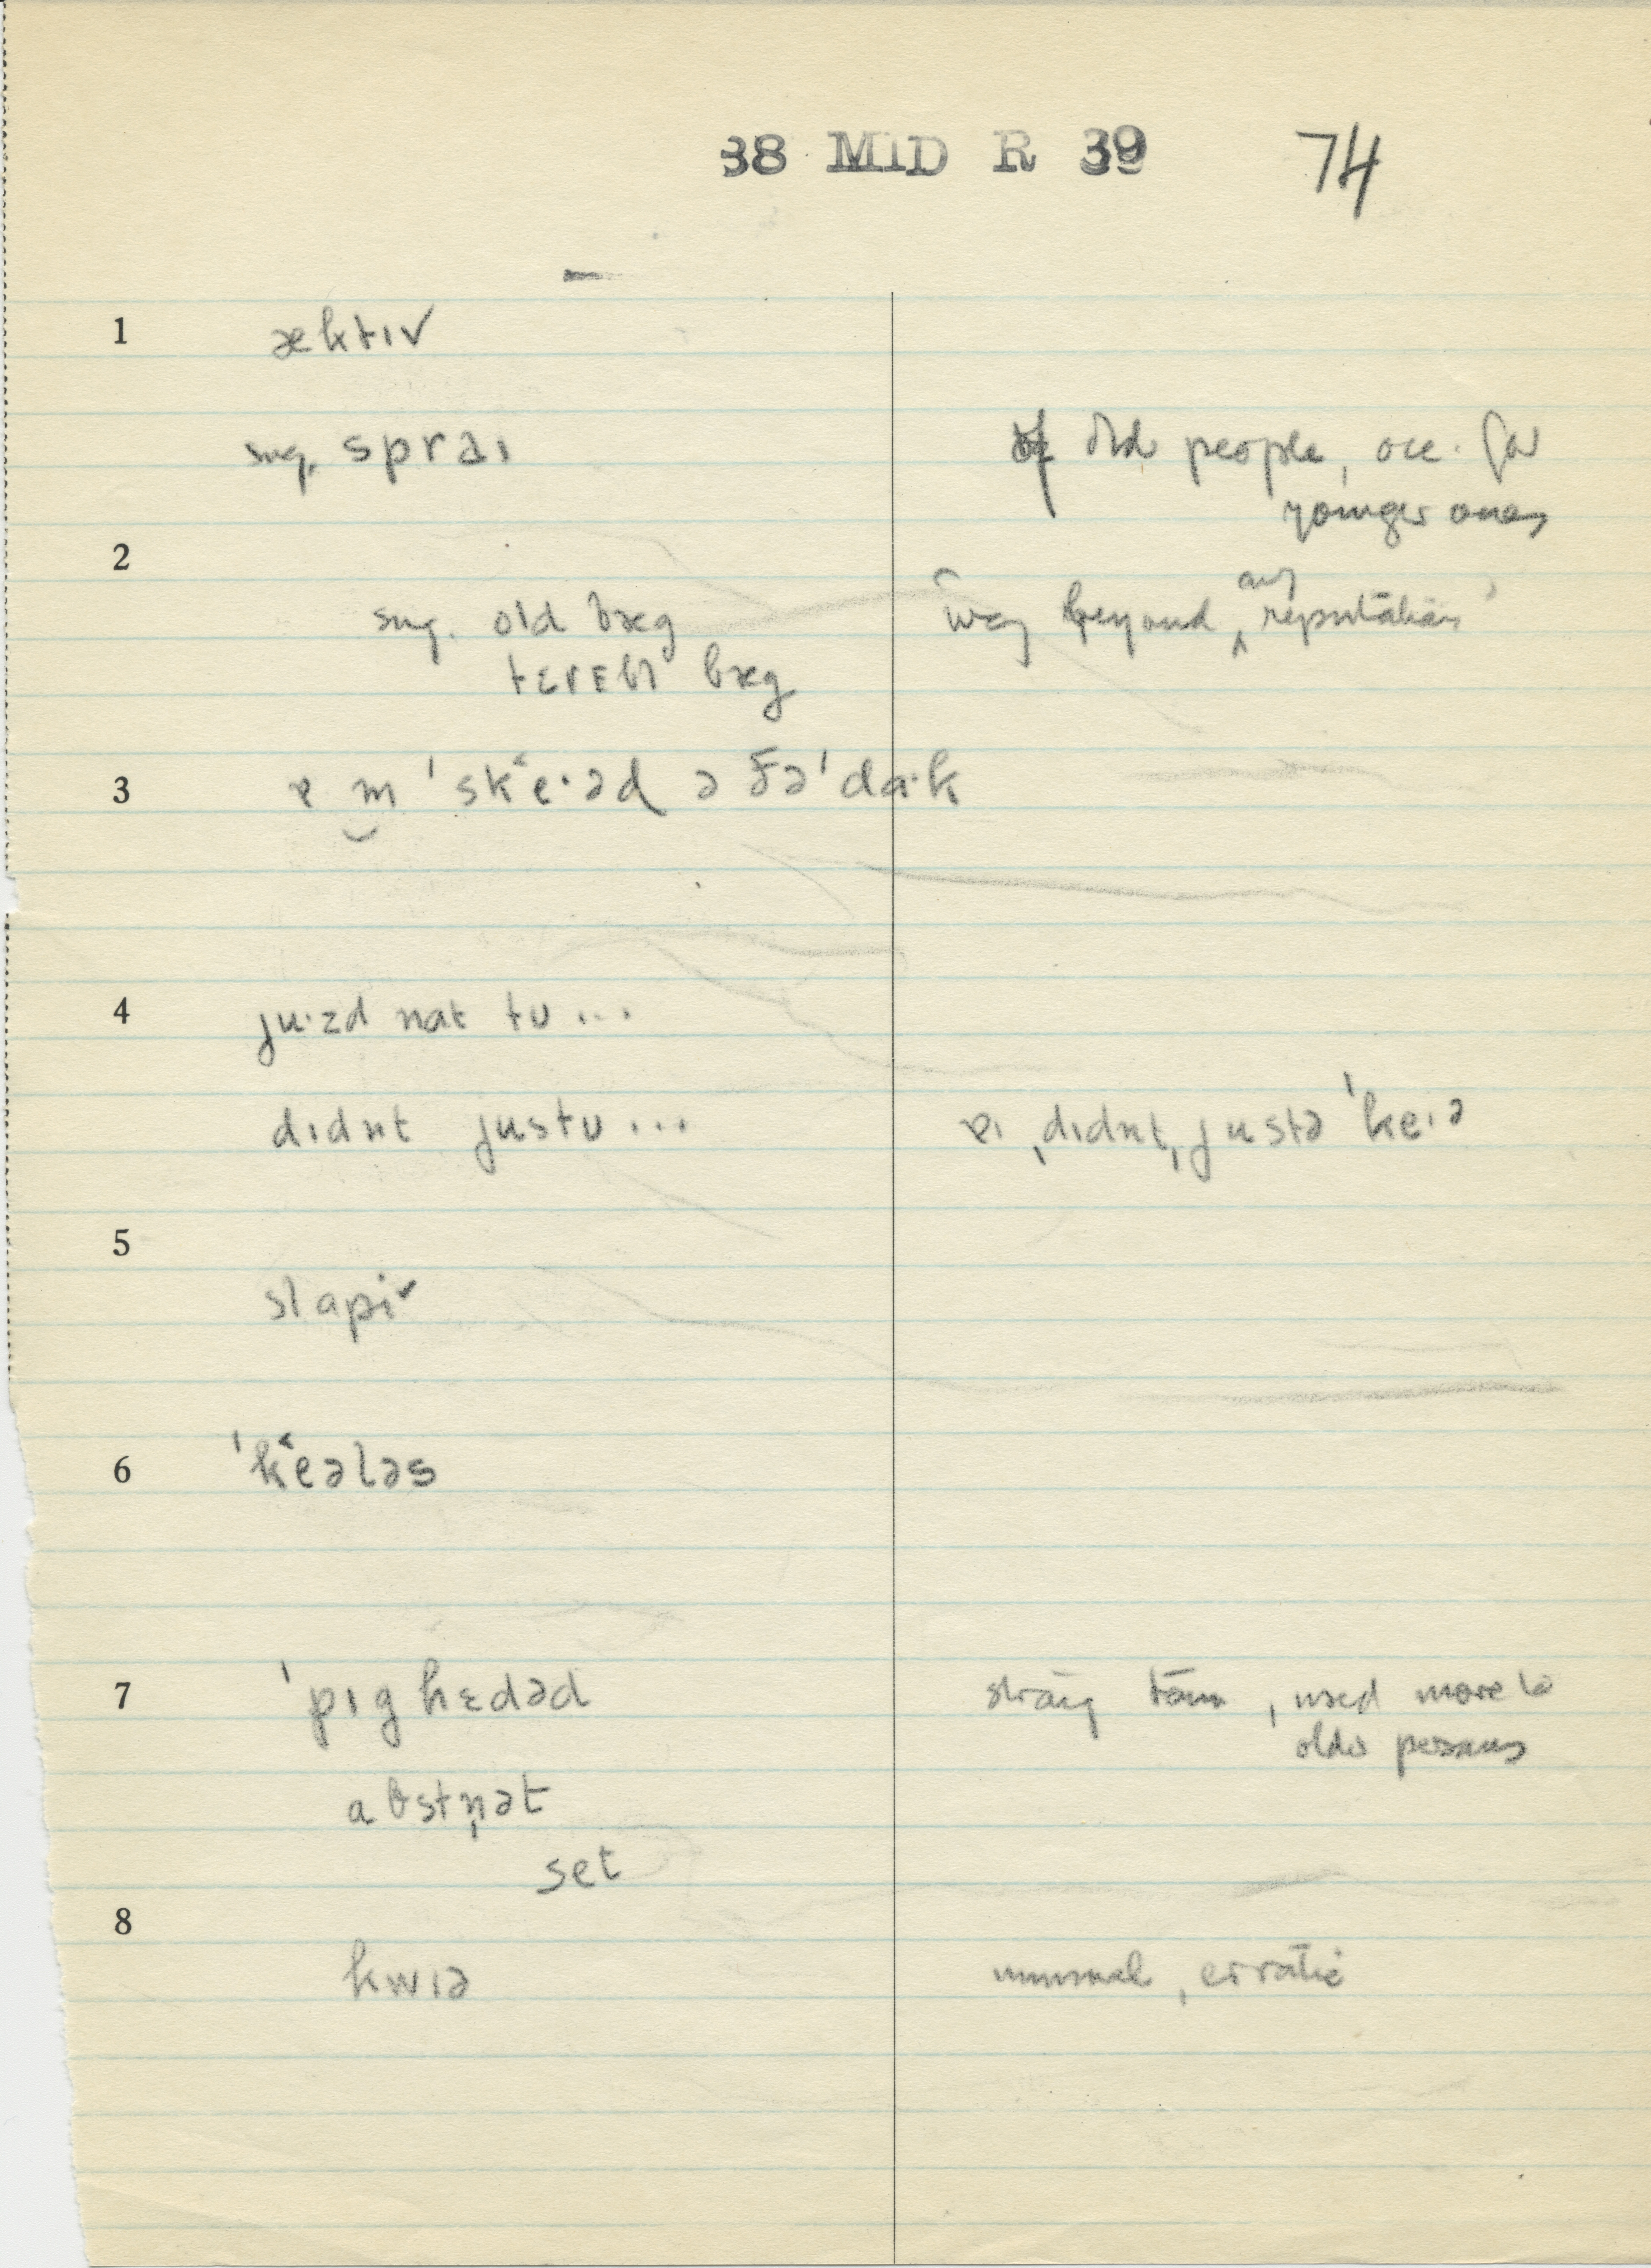 38 MID R 39 74
1 æktɪv
sug. spraɪ of old people, occ. for
younger ones
2
sug. old bæg way beyond any reputation
tɛrɛbl bæg
3 ɐ m ˈskʽe·əd ə ðəˈda·k
4 ju·zd nat tʊ...
dɪdnt justʊ... ɐɪ ˌdɪdnt ˌjustə ˈkeɪə
5
slapi˅
6 ˈkʽeələs
7 ˈpɪghɛdəd strong term, used more to
older persons
abstn̩ət
set
8
kwɪə unusual, erratic